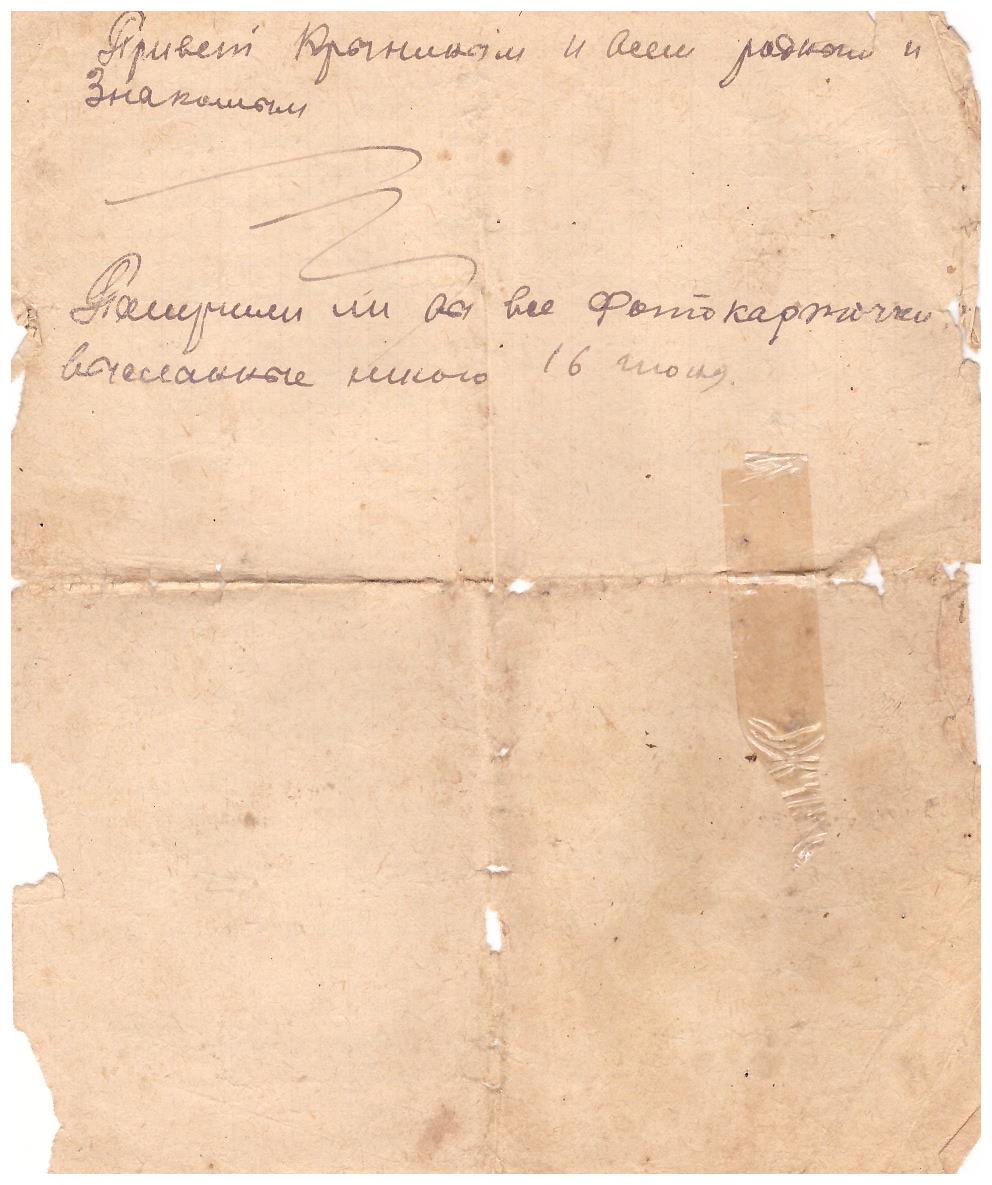 Привет Крыниным и всем родным и
Знакомым
Получили ли вы все Фотокарточки
высланные мною 16 июня.